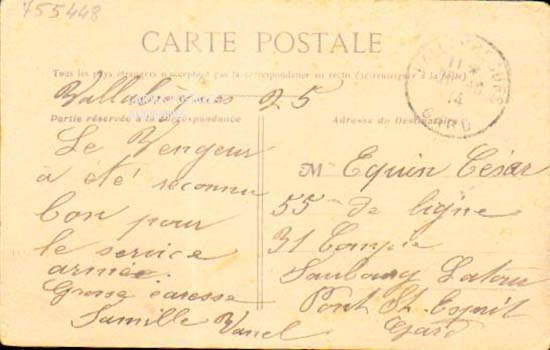 755448
CARTE POSTALE
Tous les pays étrangers n'acceptent pas la correspondance au recto (se renseigner à la poste)
Vallabrègues 25
Partie réservée à la correspondance
Adresse du Destinataire
Le Vengeur
à été reconnu
bon pour
le service
armée.
Grosse caresse
Famille Vanel
M Equin César
55 de ligne
31 Compie
Pont St Esprit
Gard
11
14
GARD